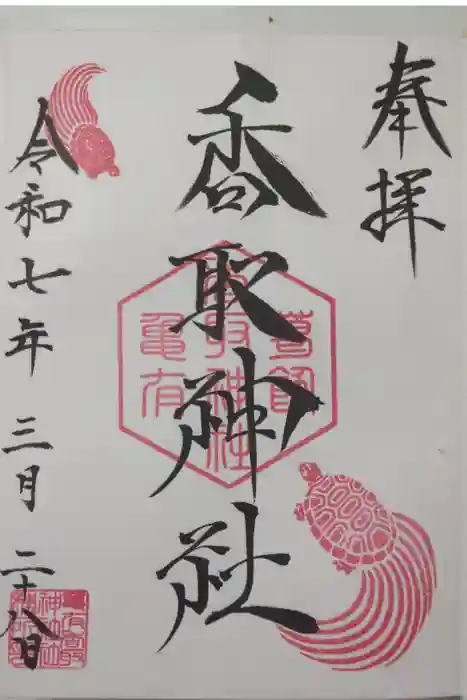 奉拝
香取神社
葛飾
香取神社
亀有
令和七年 三月 二十八日